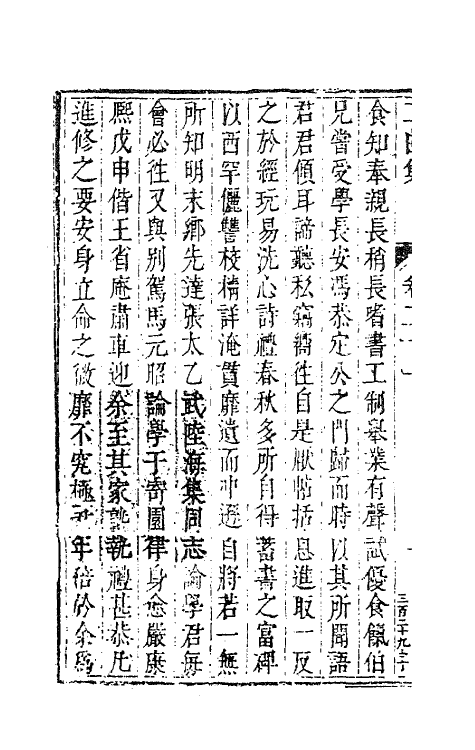 二曲集 卷二十一
食知奉親長稍長嗜書工制舉業有聲試優食餼伯
兄嘗受學長安馮恭定公之門歸而時以其所聞語
君君傾耳諦聽私竊嚮徃自是厭帖括息進取一反
之於經玩易洗心詩禮春秋多所自得蓄書之富
以西罕儷讐校精詳淹貫靡遺而冲遜自將若一無
所知明末鄉先達張太乙武陸海集同志論學君每
會必徃又與別駕馬元昭論學于寄園律身愈嚴康
熙戊申偕王省庵肅車迎余至其家執禮甚恭凡
進修之要安身立命之微靡不究極年倍於余爲